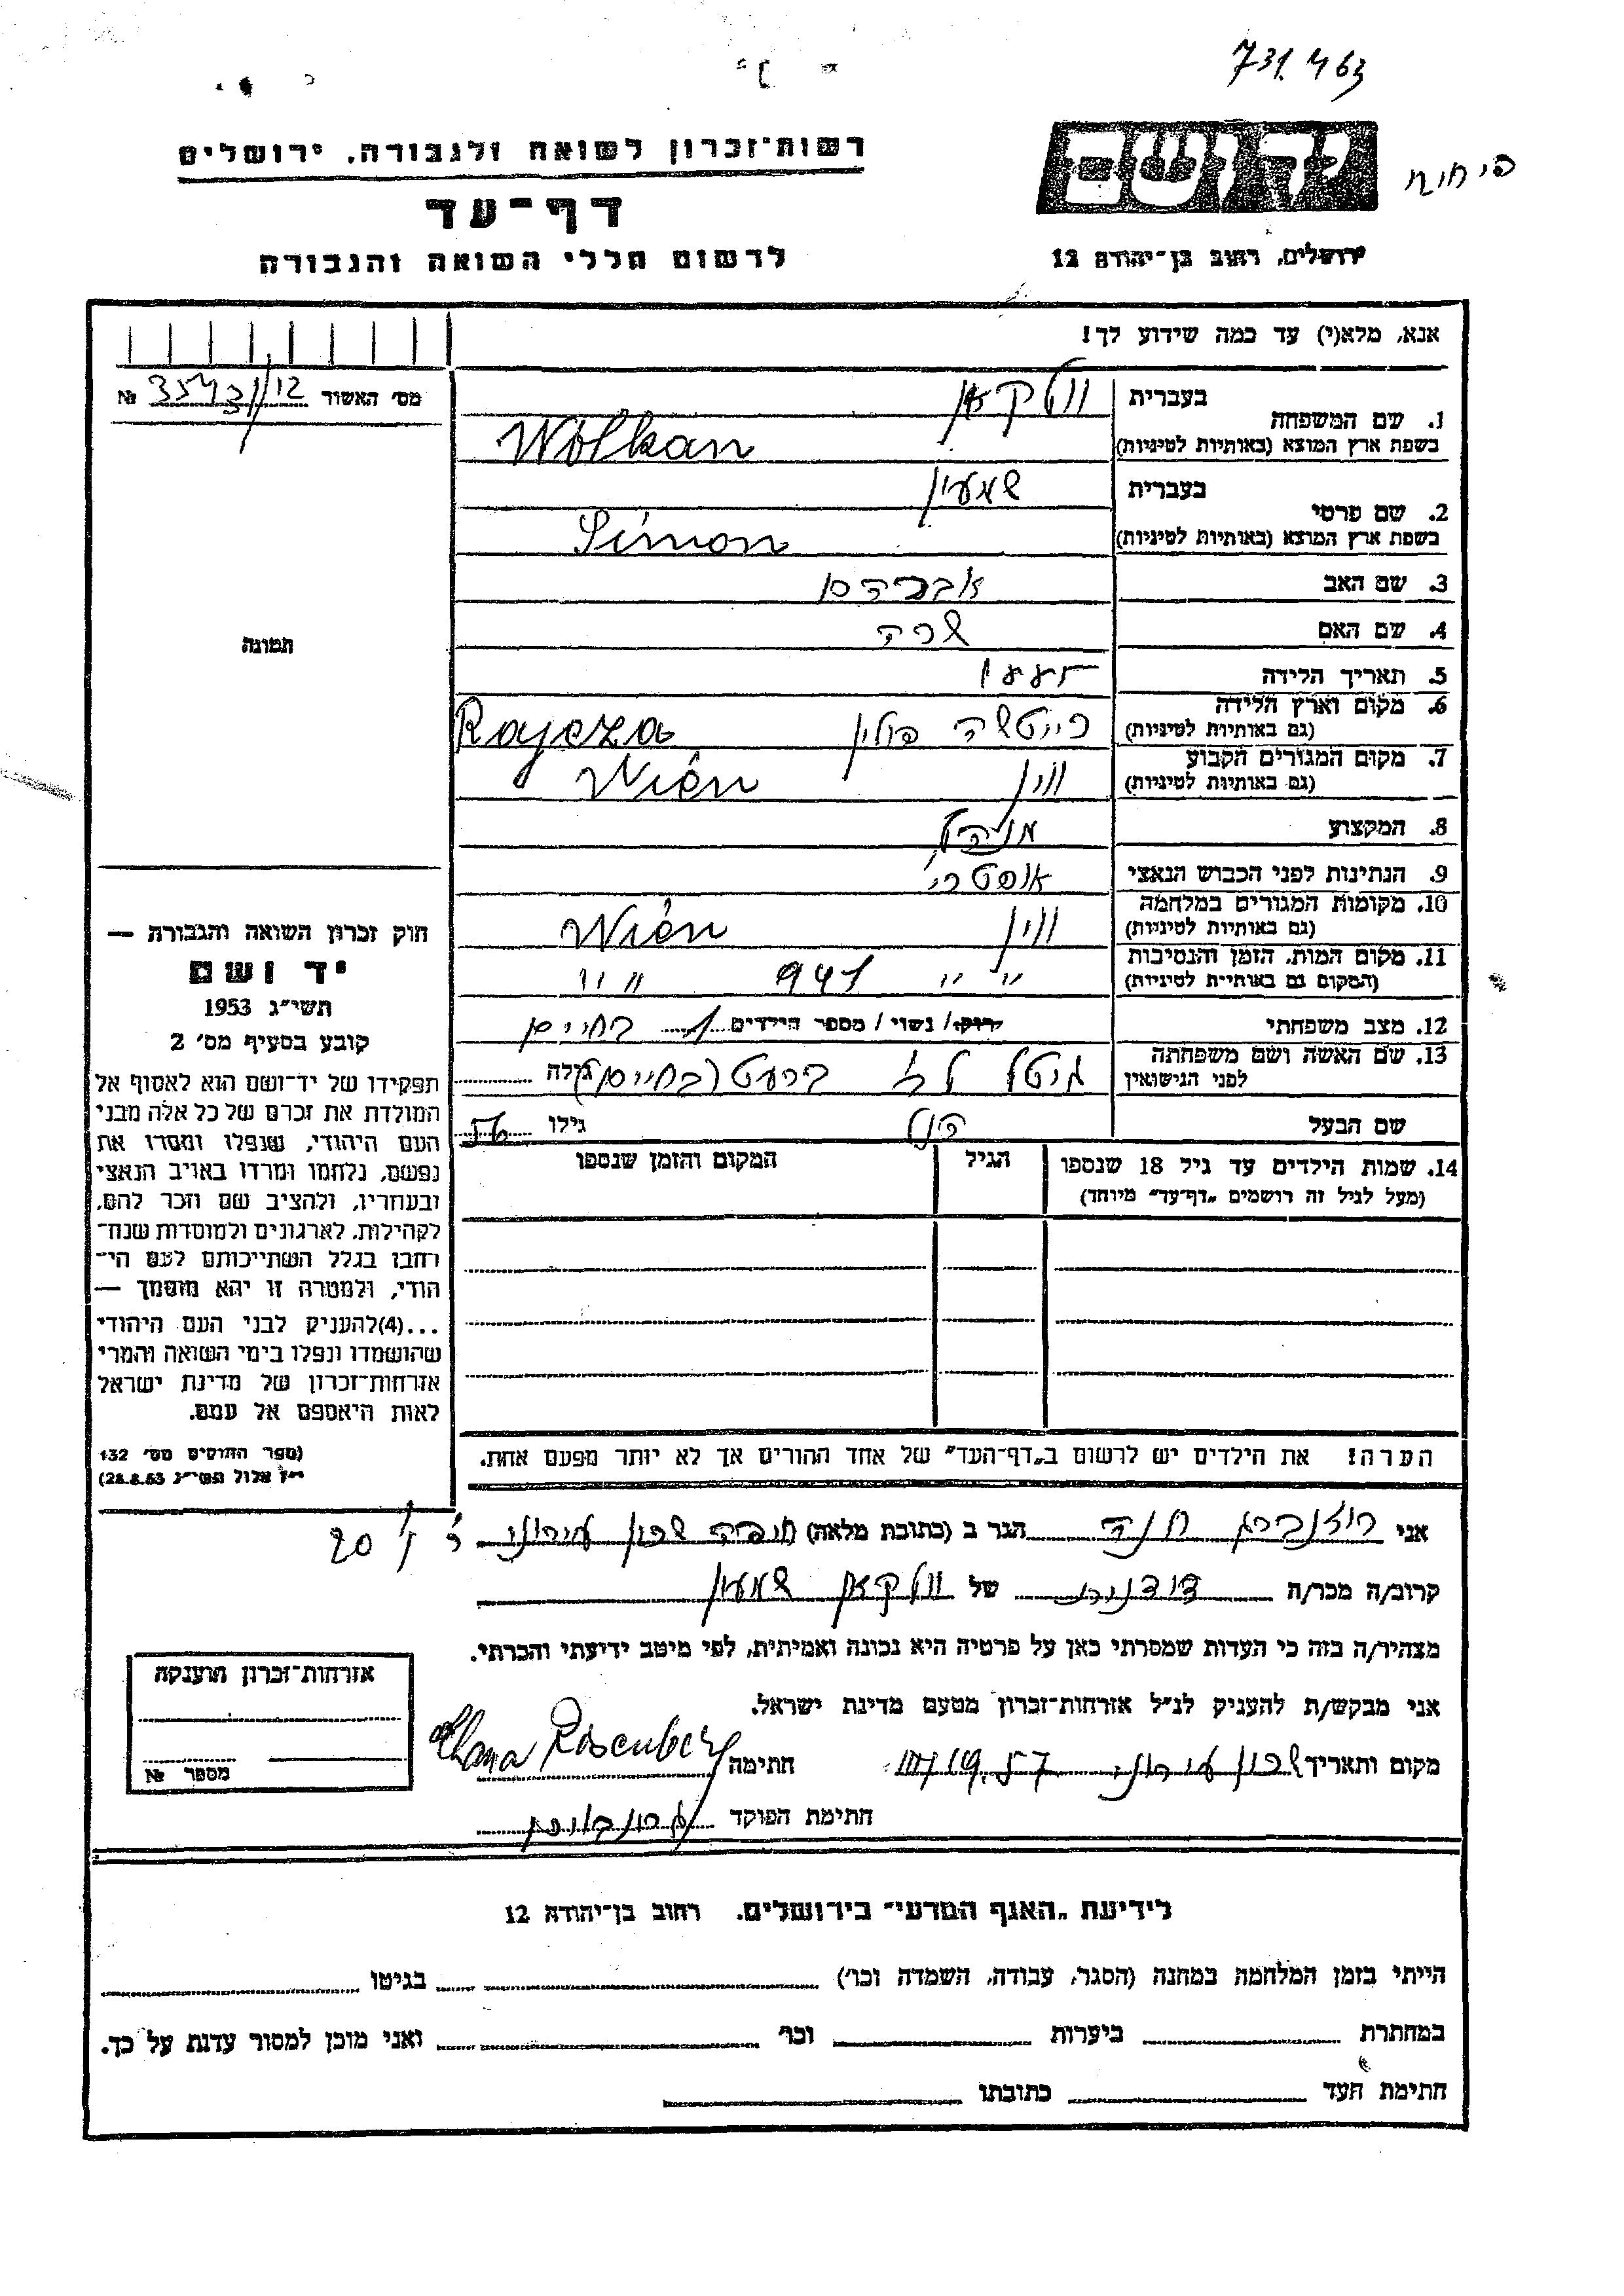 731.463
רשות־זכרון לשואה ולגבורה, ירושלים
יד ושם
דף־עד
לרשום חללי השואה והגבורה
ירושלים, רחוב בן־יהודה 12
אנא, מלא(י) עד כמה שידוע לך!
מס׳ האשור 3543/12 №
1. שם המשפחה בעברית וולקאן
בשפת ארץ המוצא (באותיות לטיניות) Wolkan
2. שם פרטי בעברית שמעון
בשפת ארץ המוצא (באותיות לטיניות) Simon
3. שם האב אברהם
4. שם האם שרה
תמונה
5. תאריך הלידה
6. מקום וארץ הלידה (גם באותיות לטיניות) פולין Rajcza
7. מקום המגורים הקבוע (גם באותיות לטיניות) ווין Wien
8. המקצוע מנהל
9. הנתינות לפני הכבוש הנאצי אוסטרי
10. מקומות המגורים במלחמה (גם באותיות לטיניות) ווין Wien
11. מקום המות, הזמן והנסיבות (המקום גם באותיות לטיניות) ״ ״ 941 ״ ״
12. מצב משפחתי רווק/ נשוי/ מספר הילדים 1 בחיים
13. שם האשה ושם משפחתה לפני הנישואין גיטל לב (בחיים) גילה
שם הבעל הנ״ל גילו 56
14. שמות הילדים עד גיל 18 שנספו (מעל לגיל זה רושמים „דף־עד״ מיוחד) הגיל המקום והזמן שנספו
חוק זכרון השואה והגבורה —
יד ושם
תשי״ג 1953
קובע בסעיף מס׳ 2
תפקידו של יד־ושם הוא לאסוף אל
המולדת את זכרם של כל אלה מבני
העם היהודי, שנפלו ומסרו את
נפשם, נלחמו ומרדו באויב הנאצי
ובעוזריו, ולהציב שם וזכר להם,
לקהילות, לארגונים ולמוסדות שנח־
רבו בגלל השתייכותם לעם הי־
הודי, ולמטרה זו יהא מוסמך —
...(4)להעניק לבני העם היהודי
שהושמדו ונפלו בימי השואה והמרי
אזרחות־זכרון של מדינת ישראל
לאות היאספם אל עמם.
(ספר החוקים מס׳ 132
י״ז אלול תשי״ג 28.8.53)
הערה! את הילדים יש לרשום ב„דף־העד״ של אחד ההורים אך לא יותר מפעם אחת.
אני רוזנברג חנה הגר ב (כתובת מלאה) חיפה שכון עירוני 20/1
קרוב/ה מכר/ה דודנית של וולקאן שמעון
מצהיר/ה בזה כי העדות שמסרתי כאן על פרטיה היא נכונה ואמיתית, לפי מיטב ידיעתי והכרתי.
אני מבקש/ת להעניק לנ״ל אזרחות־זכרון מטעם מדינת ישראל.
מקום ותאריך שכון עירוני 19.57 חתימה Chana Rosenberg
חתימת הפוקד
אזרחות־זכרון הוענקה
מספר №
לידיעת „האגף המדעי״ בירושלים, רחוב בן־יהודה 12
הייתי בזמן המלחמה במחנה (הסגר, עבודה, השמדה וכו׳) בגיטו
במחתרת ביערות וכו׳ ואני מוכן למסור עדות על כך.
חתימת העד כתובתו